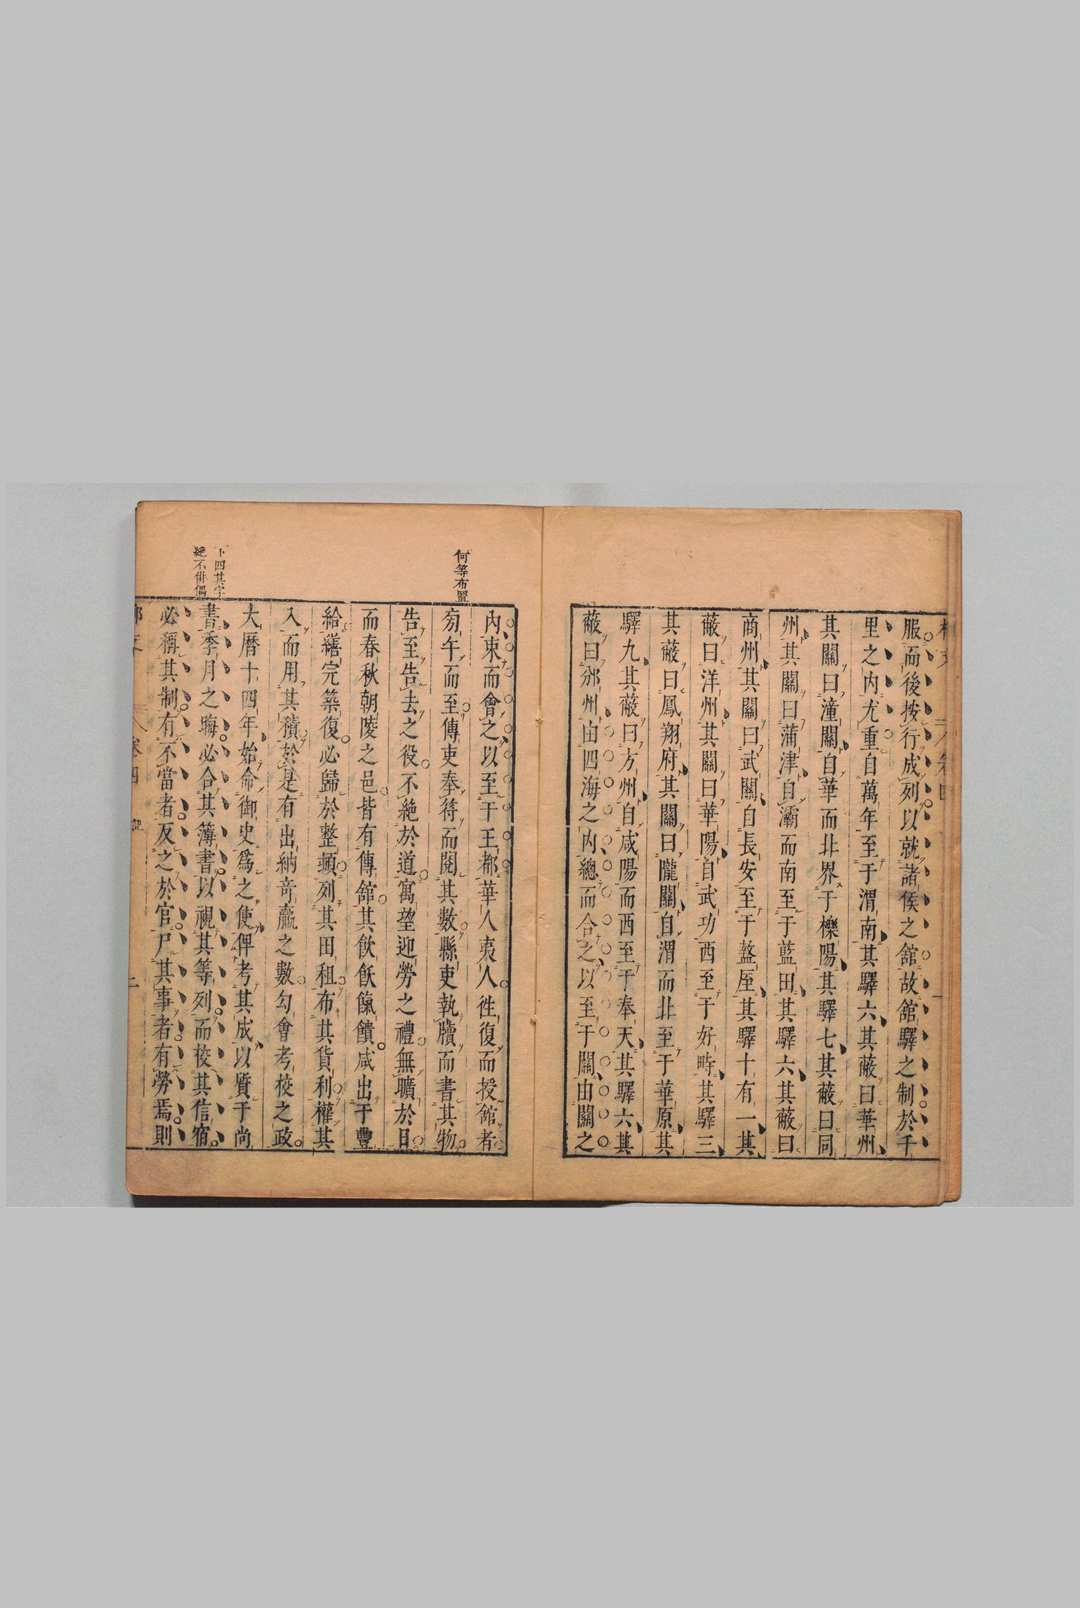 服而後按行成列以就諸侯之館故館驛之制於千
里之內尤重自萬年至于渭南其驛六其蔽曰華州
其關曰潼關自華而北界于櫟陽其驛七其蔽曰同
州其關曰蒲津自灞而南至于藍田其驛六其蔽曰
商州其關曰武關自長安至于盩厔其驛十有一其
蔽曰洋州其關曰華陽自武功西至于好畤其驛三
其蔽曰鳳翔府其關曰隴關自渭而北至于華原其
驛九其蔽曰方州自咸陽而西至于奉天其驛六其
蔽曰邠州由四海之內總而合之以至于關由關之
何等布置
內束而會之以至于王都華人夷人往復而授館者
旁午而至傳吏奉符而閱其數縣吏執牘而書其物
告至告去之役不絶於道寓望迎勞之禮無曠於日
而春秋朝陵之邑皆有傳館其飲飫餼饋咸出于豐
給繕完築復必歸於整頓列其田租布其貨利權其
入而用其積於是有出納奇羸之數勾會考校之政
大曆十四年始命御史爲之使俾考其成以質于尚
下四其字
絶不
書季月之晦必合其簿書以視其等列而校其信宿
必稱其制有不當者反之於官尸其事者有勞焉則
卷四